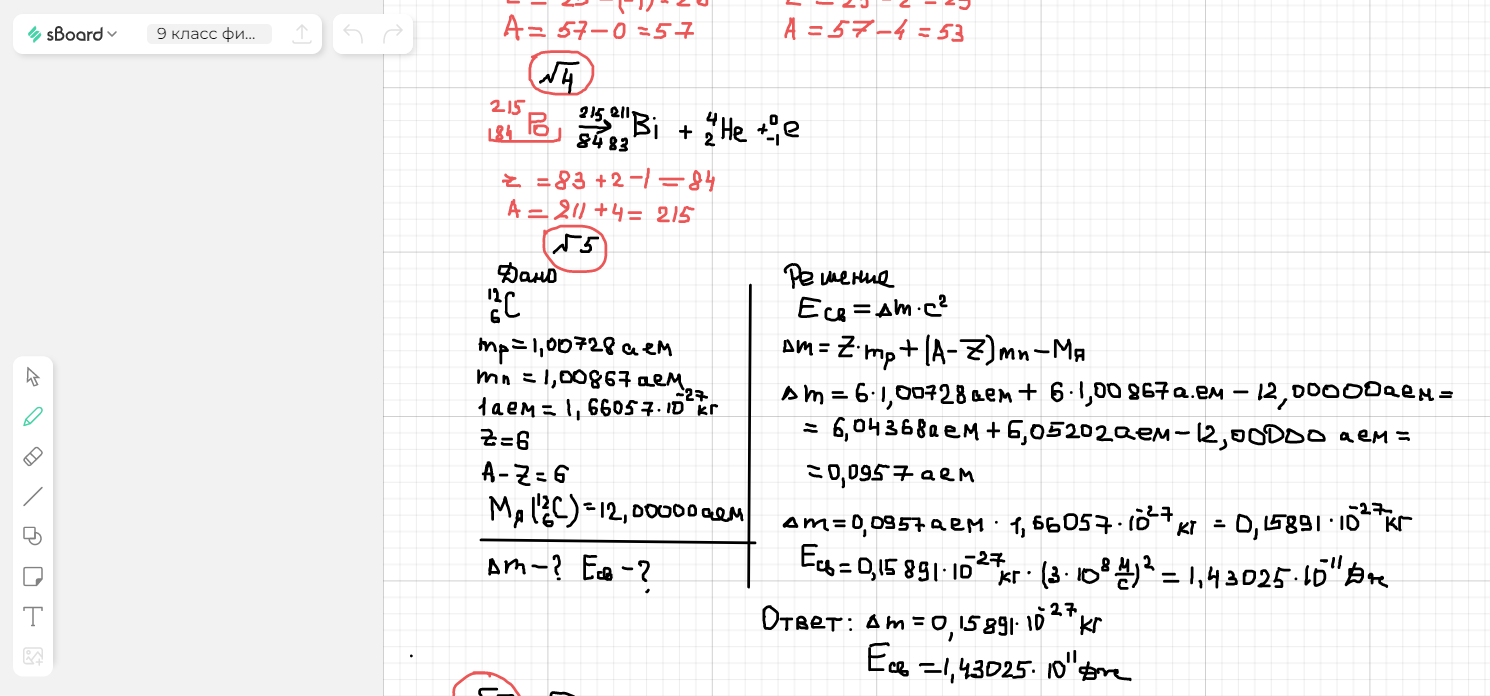 sBoard
9 класс фи...
A = 57 - 0 = 57
A = 57 - 4 = 53
√4
²¹⁵₈₄Po ²¹⁵₈₄→ ²¹¹₈₃Bi + ⁴₂He + ⁰₋₁e
z = 83 + 2 - 1 = 84
A = 211 + 4 = 215
√5
Дано
¹²₆C
mp = 1,00728 аем
mn = 1,00867 аем
1 аем = 1,66057 · 10⁻²⁷ кг
Z = 6
A - Z = 6
Mя(¹²₆C) = 12,00000 аем
Δm - ? Eсв - ?
Решение
Eсв = Δm · c²
Δm = Z · mp + (A - Z)mn - Mя
Δm = 6 · 1,00728 аем + 6 · 1,00867 а.ем - 12,00000 аем =
= 6,04368 аем + 6,05202 аем - 12,00000 аем =
= 0,0957 аем
Δm = 0,0957 аем · 1,66057 · 10⁻²⁷ кг = 0,15891 · 10⁻²⁷ кг
Eсв = 0,15891 · 10⁻²⁷ кг · (3 · 10⁸ м/с)² = 1,43025 · 10⁻¹¹ Дж
Ответ: Δm = 0,15891 · 10⁻²⁷ кг
Eсв = 1,43025 · 10¹¹ Дж